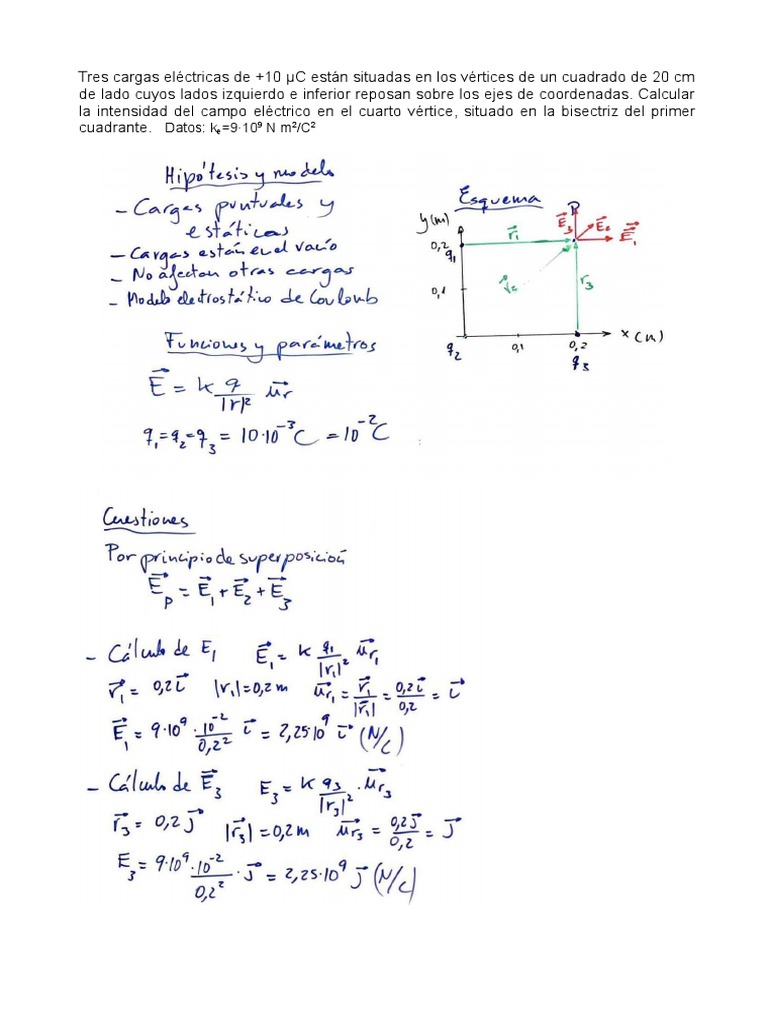 Tres cargas eléctricas de +10 μC están situadas en los vértices de un cuadrado de 20 cm
de lado cuyos lados izquierdo e inferior reposan sobre los ejes de coordenadas. Calcular
la intensidad del campo eléctrico en el cuarto vértice, situado en la bisectriz del primer
cuadrante. Datos: kₑ=9·10⁹ N m²/C²
Hipótesis y modelo
- Cargas puntuales y
estáticas
- Cargas están en el vacío
- No afectan otras cargas
- Modelo electrostático de Coulomb
Funciones y parámetros
E⃗ = k q/|r|² u⃗r
q₁=q₂=q₃ = 10·10⁻³C = 10⁻²C
Esquema
y(m)
0,2
q₁
0,1
q₂
0,1
0,2
q₃
x(m)
r⃗₁
r⃗₂
r₃
P
E⃗₃
E⃗₂
E⃗₁
Cuestiones
Por principio de superposición
E⃗p = E⃗₁ + E⃗₂ + E⃗₃
- Cálculo de E₁ E⃗₁ = k q₁/|r₁|² u⃗r₁
r⃗₁ = 0,2 i⃗ |r₁| = 0,2 m u⃗r₁ = r⃗₁/|r⃗₁| = 0,2 i⃗/0,2 = i⃗
E⃗₁ = 9·10⁹ · 10⁻²/0,2² i⃗ = 2,25·10⁹ i⃗ (N/C)
- Cálculo de E⃗₃ E₃ = k q₃/|r₃|² · u⃗r₃
r⃗₃ = 0,2 j⃗ |r⃗₃| = 0,2 m u⃗r₃ = 0,2 j⃗/0,2 = j⃗
E₃ = 9·10⁹·10⁻²/0,2² · j⃗ = 2,25·10⁹ j⃗ (N/C)